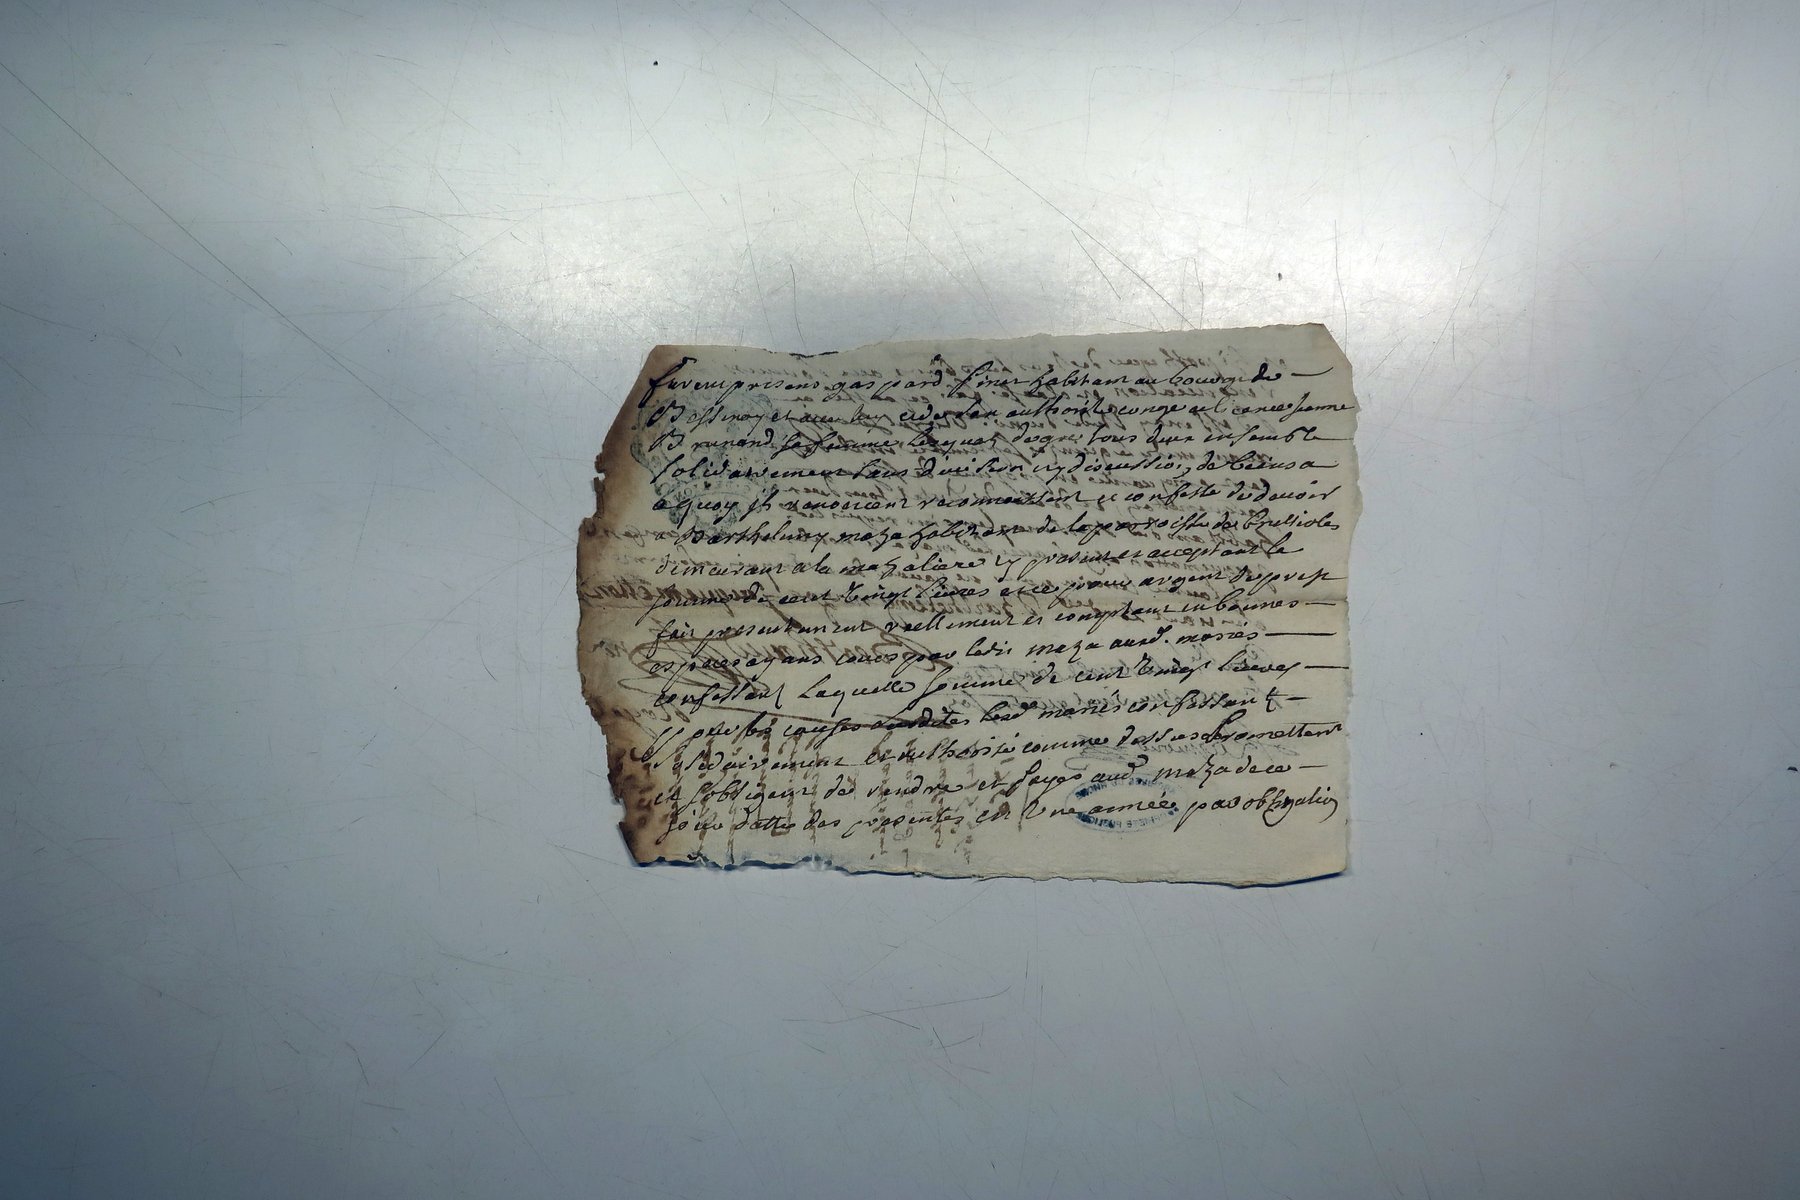 furent presens gaspard finet habitant au bourg de
Bessenay et avec luy et de son authorité conge et licence Jeanne
Brunand sa femme lesquels de gré tous deux ensemble
solidairement sans division ny discussion de biens a
quoy ils renoncent reconnoissent et confesse de devoir
a Barthelemy maza habitant de la parroisse de Brullioles
demeurant a la mazaliere cy present et acceptant la
somme de cent vingt livres et ce pour argent de prest
fait presentement reellement et comptant en bonnes
especes ayans cours par ledit maza aud. mariés
confessant laquelle somme de cent vingt livres
pour les causes susdites lesd mariés confessant
solidairement et authorité comme dessus promettent
et s'obligent de rendre et payer aud maza de ce
jour datte des presentes en une année par obligation